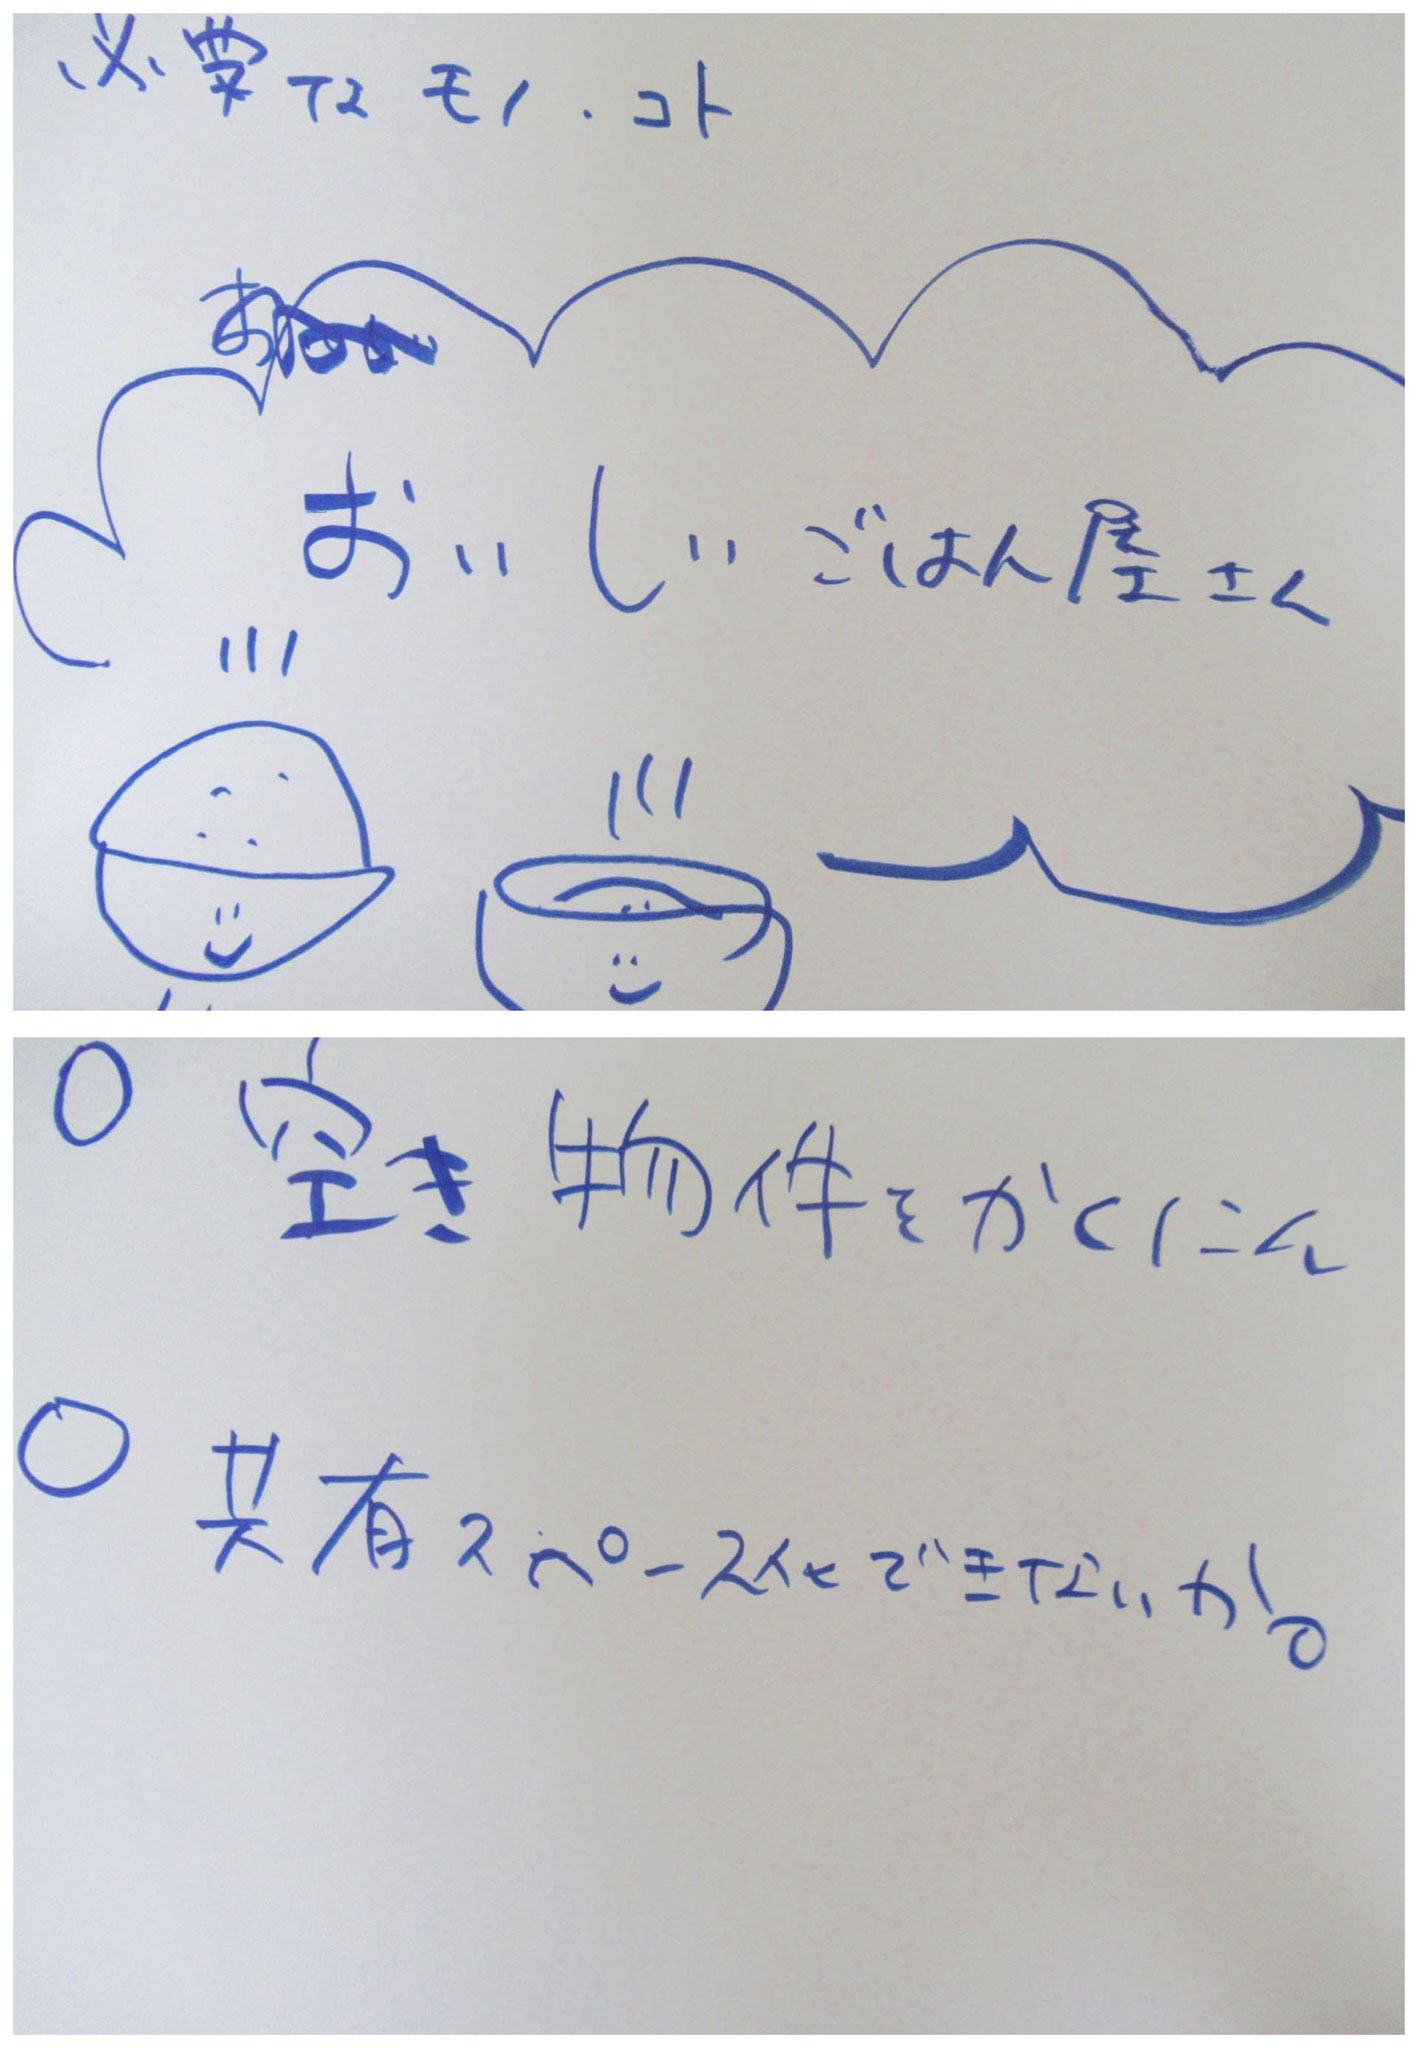 必要なモノ・コト
おいしいごはん屋さん
○ 空き物件をかくにん
○ 共有スペース化できないか。